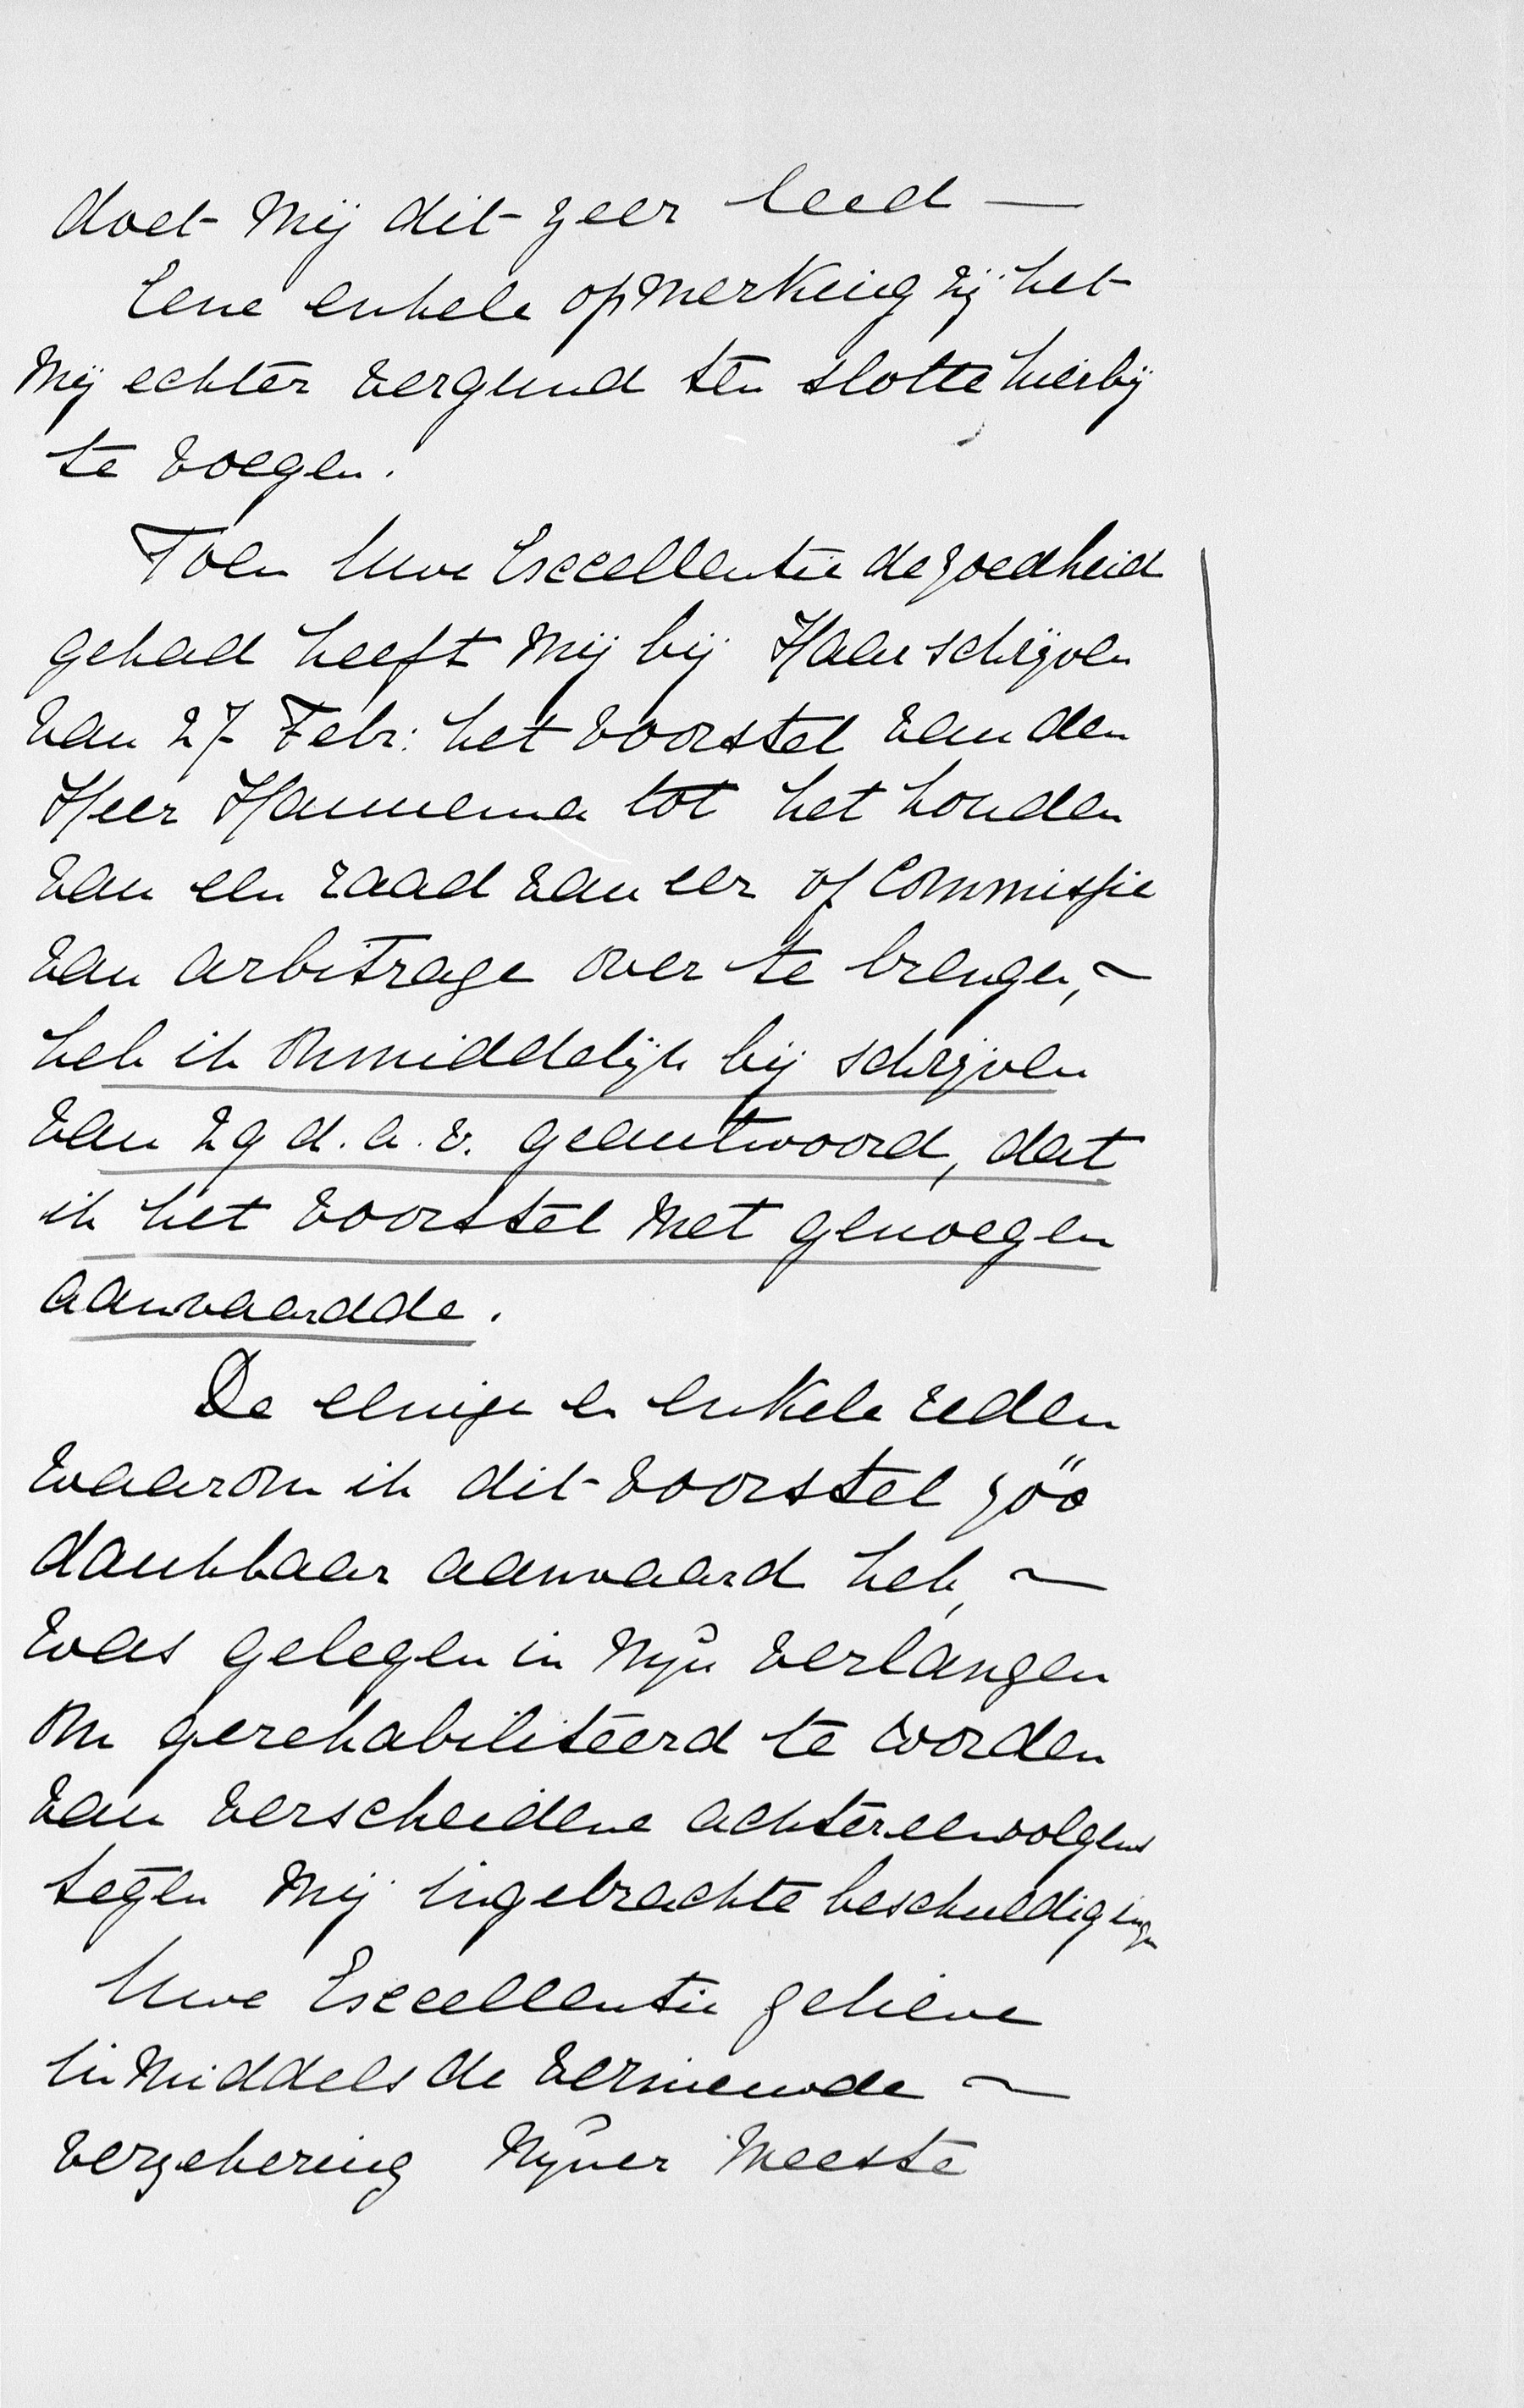 doet mij dit zeer leed —
Eene enkele opmerking zij het
mij echter vergund ten slotte hierbij
te voegen.
Toen Uwe Excellentie de goedheid
gehad heeft mij bij Haar schrijven
van 27 Febr: het voorstel van den
Heer Hannema tot het houden
van een raad van eer of Commissie
van arbitrage over te brengen, ~
heb ik onmiddelijk bij schrijven
van 29 d.a.v. geantwoord, dat
ik het voorstel met genoegen
aanvaardde.
De eenige en enkele reden
waarom ik dit voorstel zóó
dankbaar aanvaard heb, ~
was gelegen in mijn verlangen
om gerehabiliteerd te worden
van verscheidene achtereenvolgens
tegen mij ingebrachte beschuldigingen
Uwe Excellentie gelieve
inmiddels de vernieuwde ~
verzekering mijner meeste